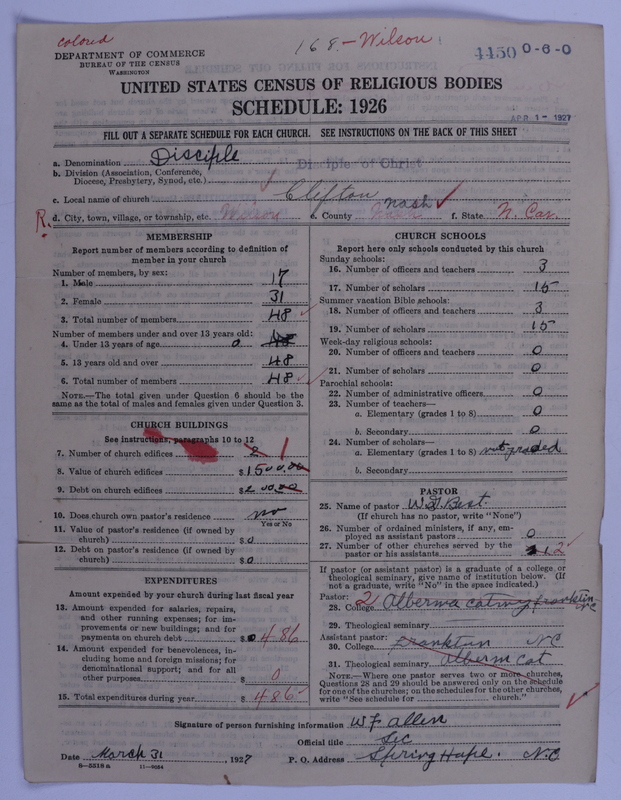 colored
168-Wilson
4450 0-6-0
DEPARTMENT OF COMMERCE
BUREAU OF THE CENSUS
WASHINGTON
UNITED STATES CENSUS OF RELIGIOUS BODIES
SCHEDULE: 1926
APR 1 - 1927
FILL OUT A SEPARATE SCHEDULE FOR EACH CHURCH. SEE INSTRUCTIONS ON THE BACK OF THIS SHEET
a. Denomination Disciple Disciple of Christ
b. Division (Association, Conference,
Diocese, Presbytery, Synod, etc.)
c. Local name of church Clifton
R. d. City, town, village, or township, etc. Wilson e. County Nash Nash f. State N. Car.
MEMBERSHIP
Report number of members according to definition of
member in your church
Number of members, by sex:
1. Male 17
2. Female 31
3. Total number of members 48
Number of members under and over 13 years old:
4. Under 13 years of age 0 48
5. 13 years old and over 48
6. Total number of members 48
NOTE.—The total given under Question 6 should be
the same as the total of males and females given under Question 3.
CHURCH BUILDINGS
See instructions, paragraphs 10 to 12
7. Number of church edifices 1
8. Value of church edifices $1500.00
9. Debt on church edifices $200.00
10. Does church own pastor's residence no
Yes or No
11. Value of pastor's residence (if owned by
church) $0
12. Debt on pastor's residence (if owned by
church) $0
EXPENDITURES
Amount expended by your church during last fiscal year
13. Amount expended for salaries, repairs,
and other running expenses; for im-
provements or new buildings; and for
payments on church debt $0 486
14. Amount expended for benevolences, in-
cluding home and foreign missions; for
denominational support; and for all
other purposes $0
15. Total expenditures during year $486
CHURCH SCHOOLS
Report here only schools conducted by this church
Sunday schools:
16. Number of officers and teachers 3
17. Number of scholars 15
Summer vacation Bible schools:
18. Number of officers and teachers 3
19. Number of scholars 15
Week-day religious schools:
20. Number of officers and teachers 0
21. Number of scholars 0
Parochial schools:
22. Number of administrative officers 0
23. Number of teachers—
a. Elementary (grades 1 to 8) 0
b. Secondary 0
24. Number of scholars—
a. Elementary (grades 1 to 8) not graded
b. Secondary
PASTOR
25. Name of pastor Best
(If church has no pastor, write "None")
26. Number of ordained ministers, if any, em-
ployed as assistant pastors 0
27. Number of other churches served by the
pastor or his assistants 2
If pastor (or assistant pastor) is a graduate of a college or
theological seminary, give name of institution below. (If
not a graduate, write "No" in the space indicated.)
Pastor:
28. College franklin NC
29. Theological seminary
Assistant pastor:
30. College franklin NC
31. Theological seminary
NOTE.—Where one pastor serves two or more churches,
Questions 28 and 29 should be answered only on the schedule
for one of the churches; on the schedules for the other churches,
write "See schedule for church."
Signature of person furnishing information W F allen
Official title Sec
Date March 31 1927 P. O. Address Spring Hope. N.C
6-5518 a 11-9034